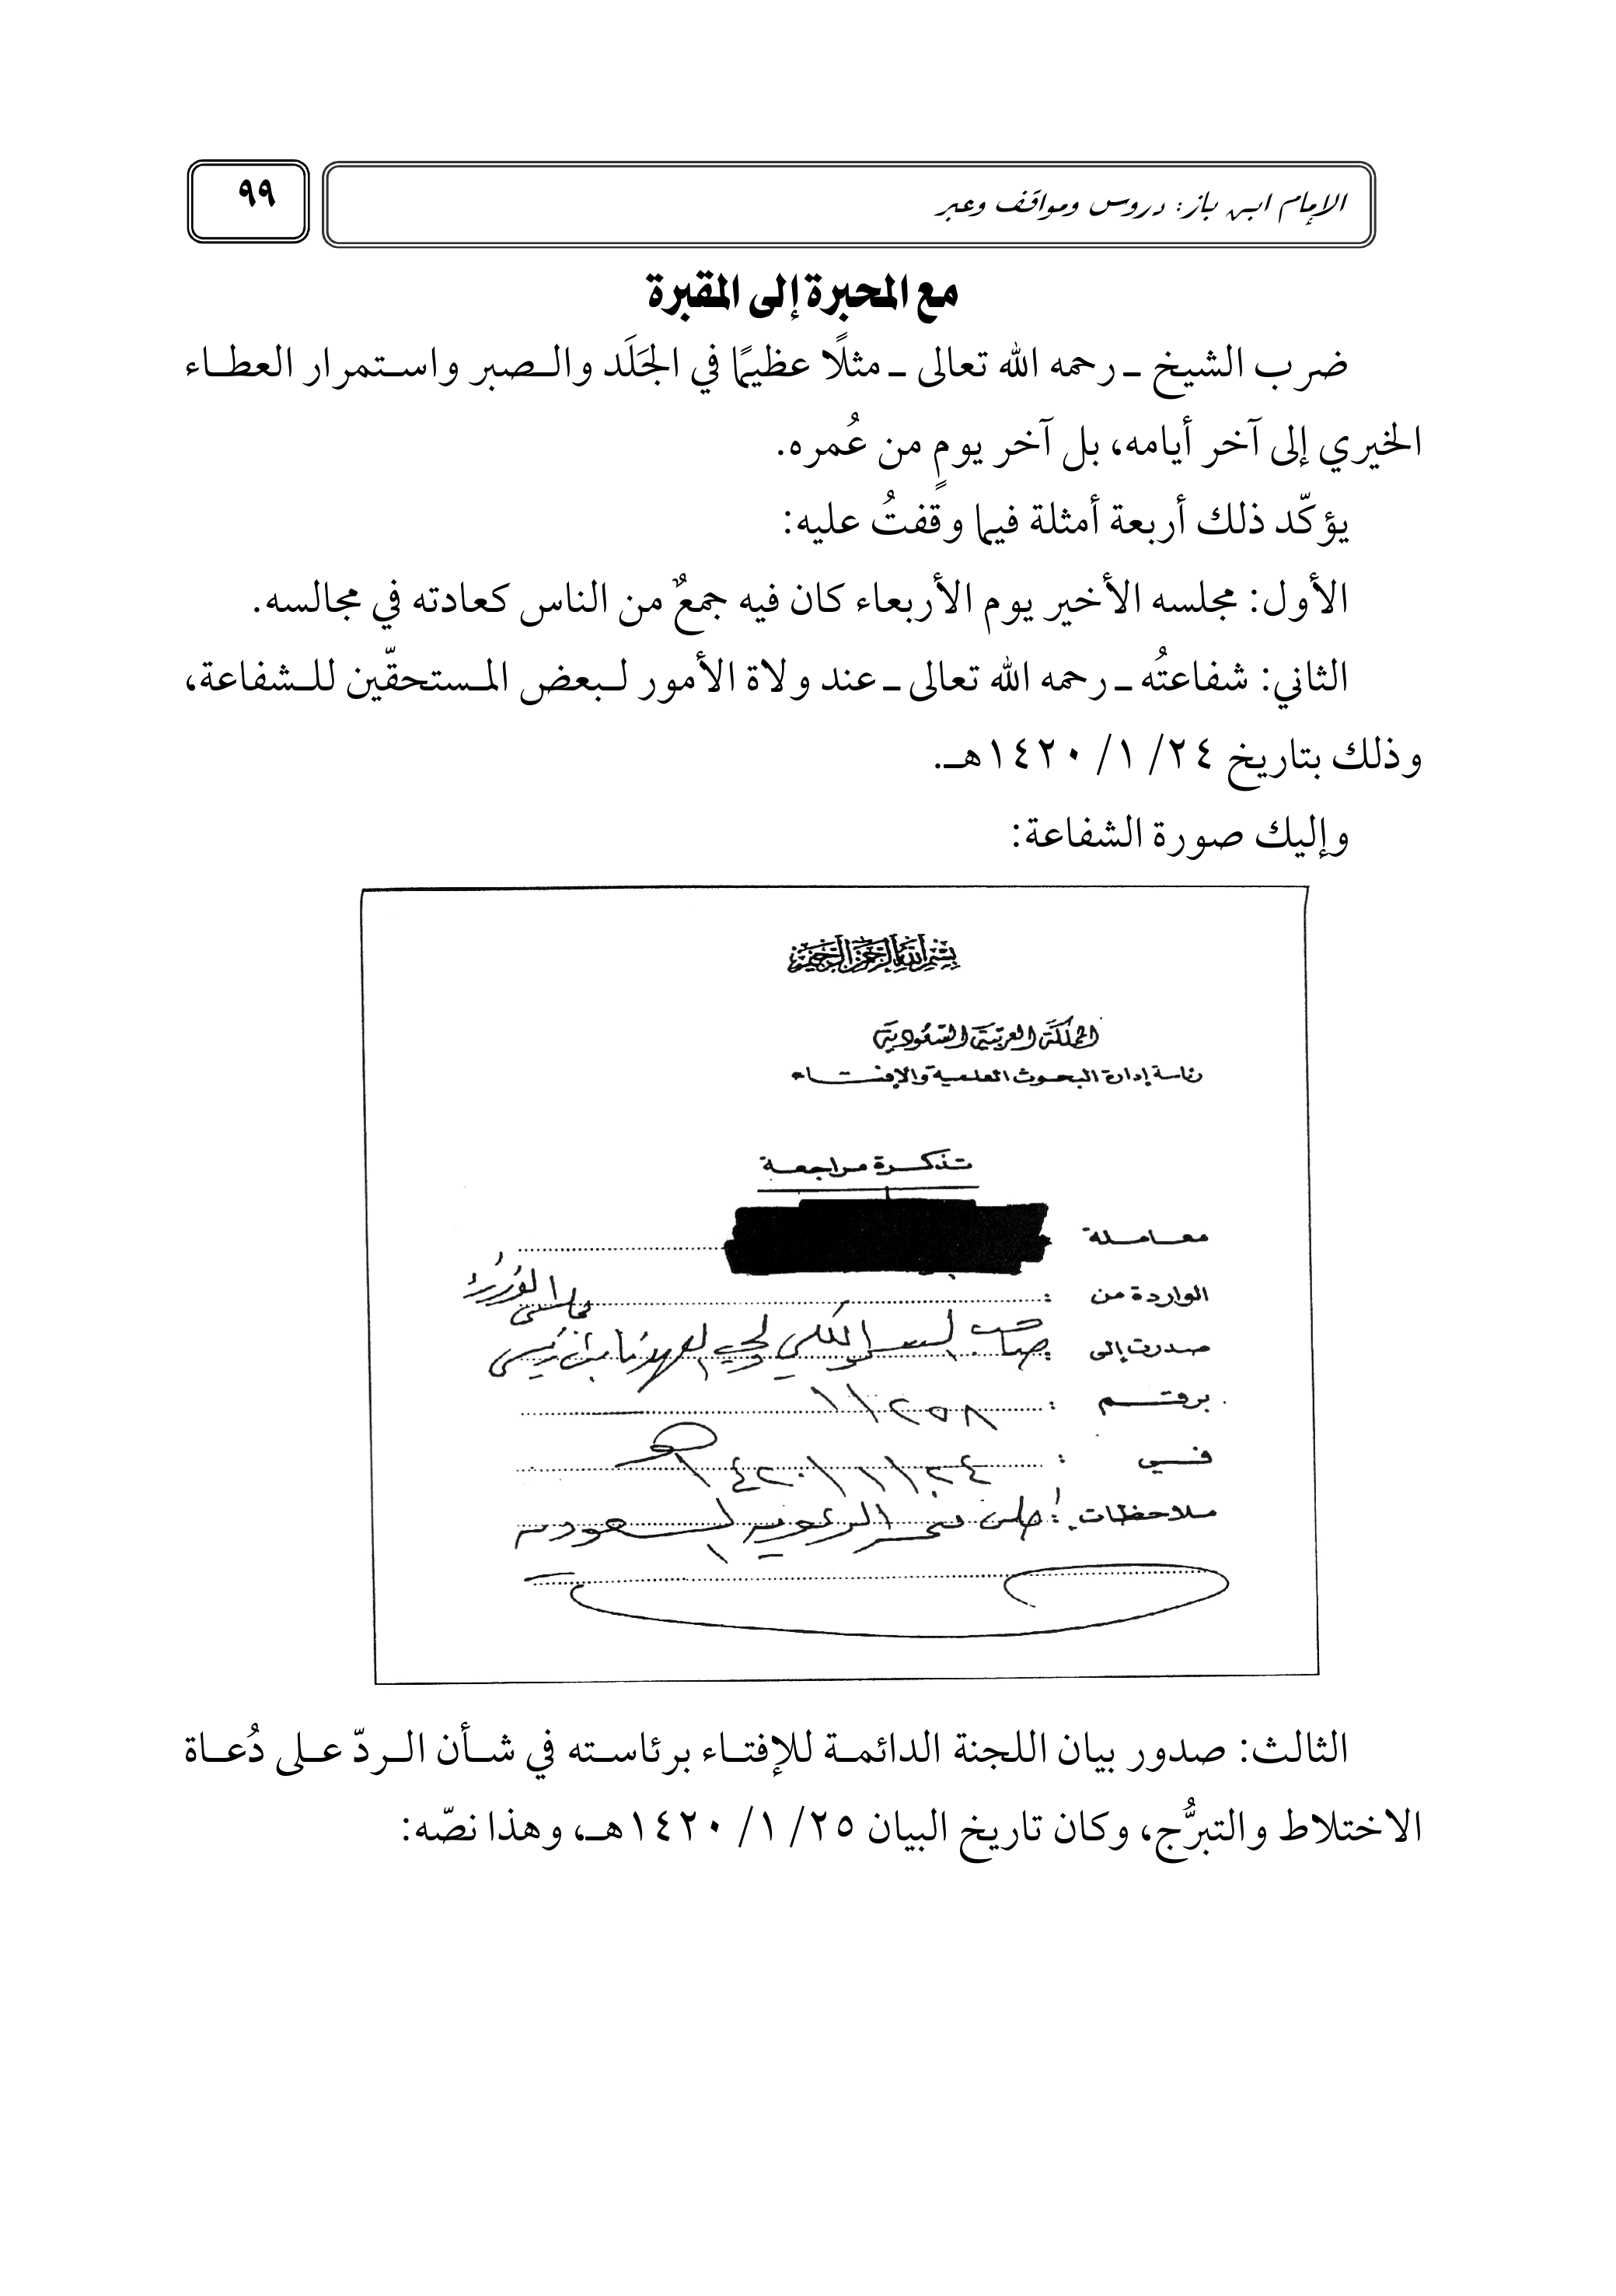 الإمام ابن باز: دروس ومواقف وعبر
٩٩
مع المحبرة إلى المقبرة
ضرب الشيخ ـ رحمه الله تعالى ـ مثلًا عظيمًا في الجَلَد والصبر واستمرار العطاء
الخيري إلى آخر أيامه، بل آخر يومٍ من عُمره.
يؤكّد ذلك أربعة أمثلة فيما وقفتُ عليه:
الأول: مجلسه الأخير يوم الأربعاء كان فيه جمعٌ من الناس كعادته في مجالسه.
الثاني: شفاعتُه ـ رحمه الله تعالى ـ عند ولاة الأمور لبعض المستحقّين للشفاعة،
وذلك بتاريخ ٢٤/ ١/ ١٤٢٠هـ.
وإليك صورة الشفاعة:
بسم الله الرحمن الرحيم
المملكة العربية السعودية
رئاسة إدارة البحوث العلمية والإفتاء
تذكرة مراجعة
معاملة
الواردة من :
صدرت إلى : صاحب السمو الملكي ولي العهد نائب رئيس مجلس الوزراء
برقم : ١١/٢٥٨
في : ١٤٢٠/١/٢٤ هـ
ملاحظات :
الثالث: صدور بيان اللجنة الدائمة للإفتاء برئاسته في شأن الردّ على دُعاة
الاختلاط والتبرُّج، وكان تاريخ البيان ٢٥/ ١/ ١٤٢٠هـ، وهذا نصّه: